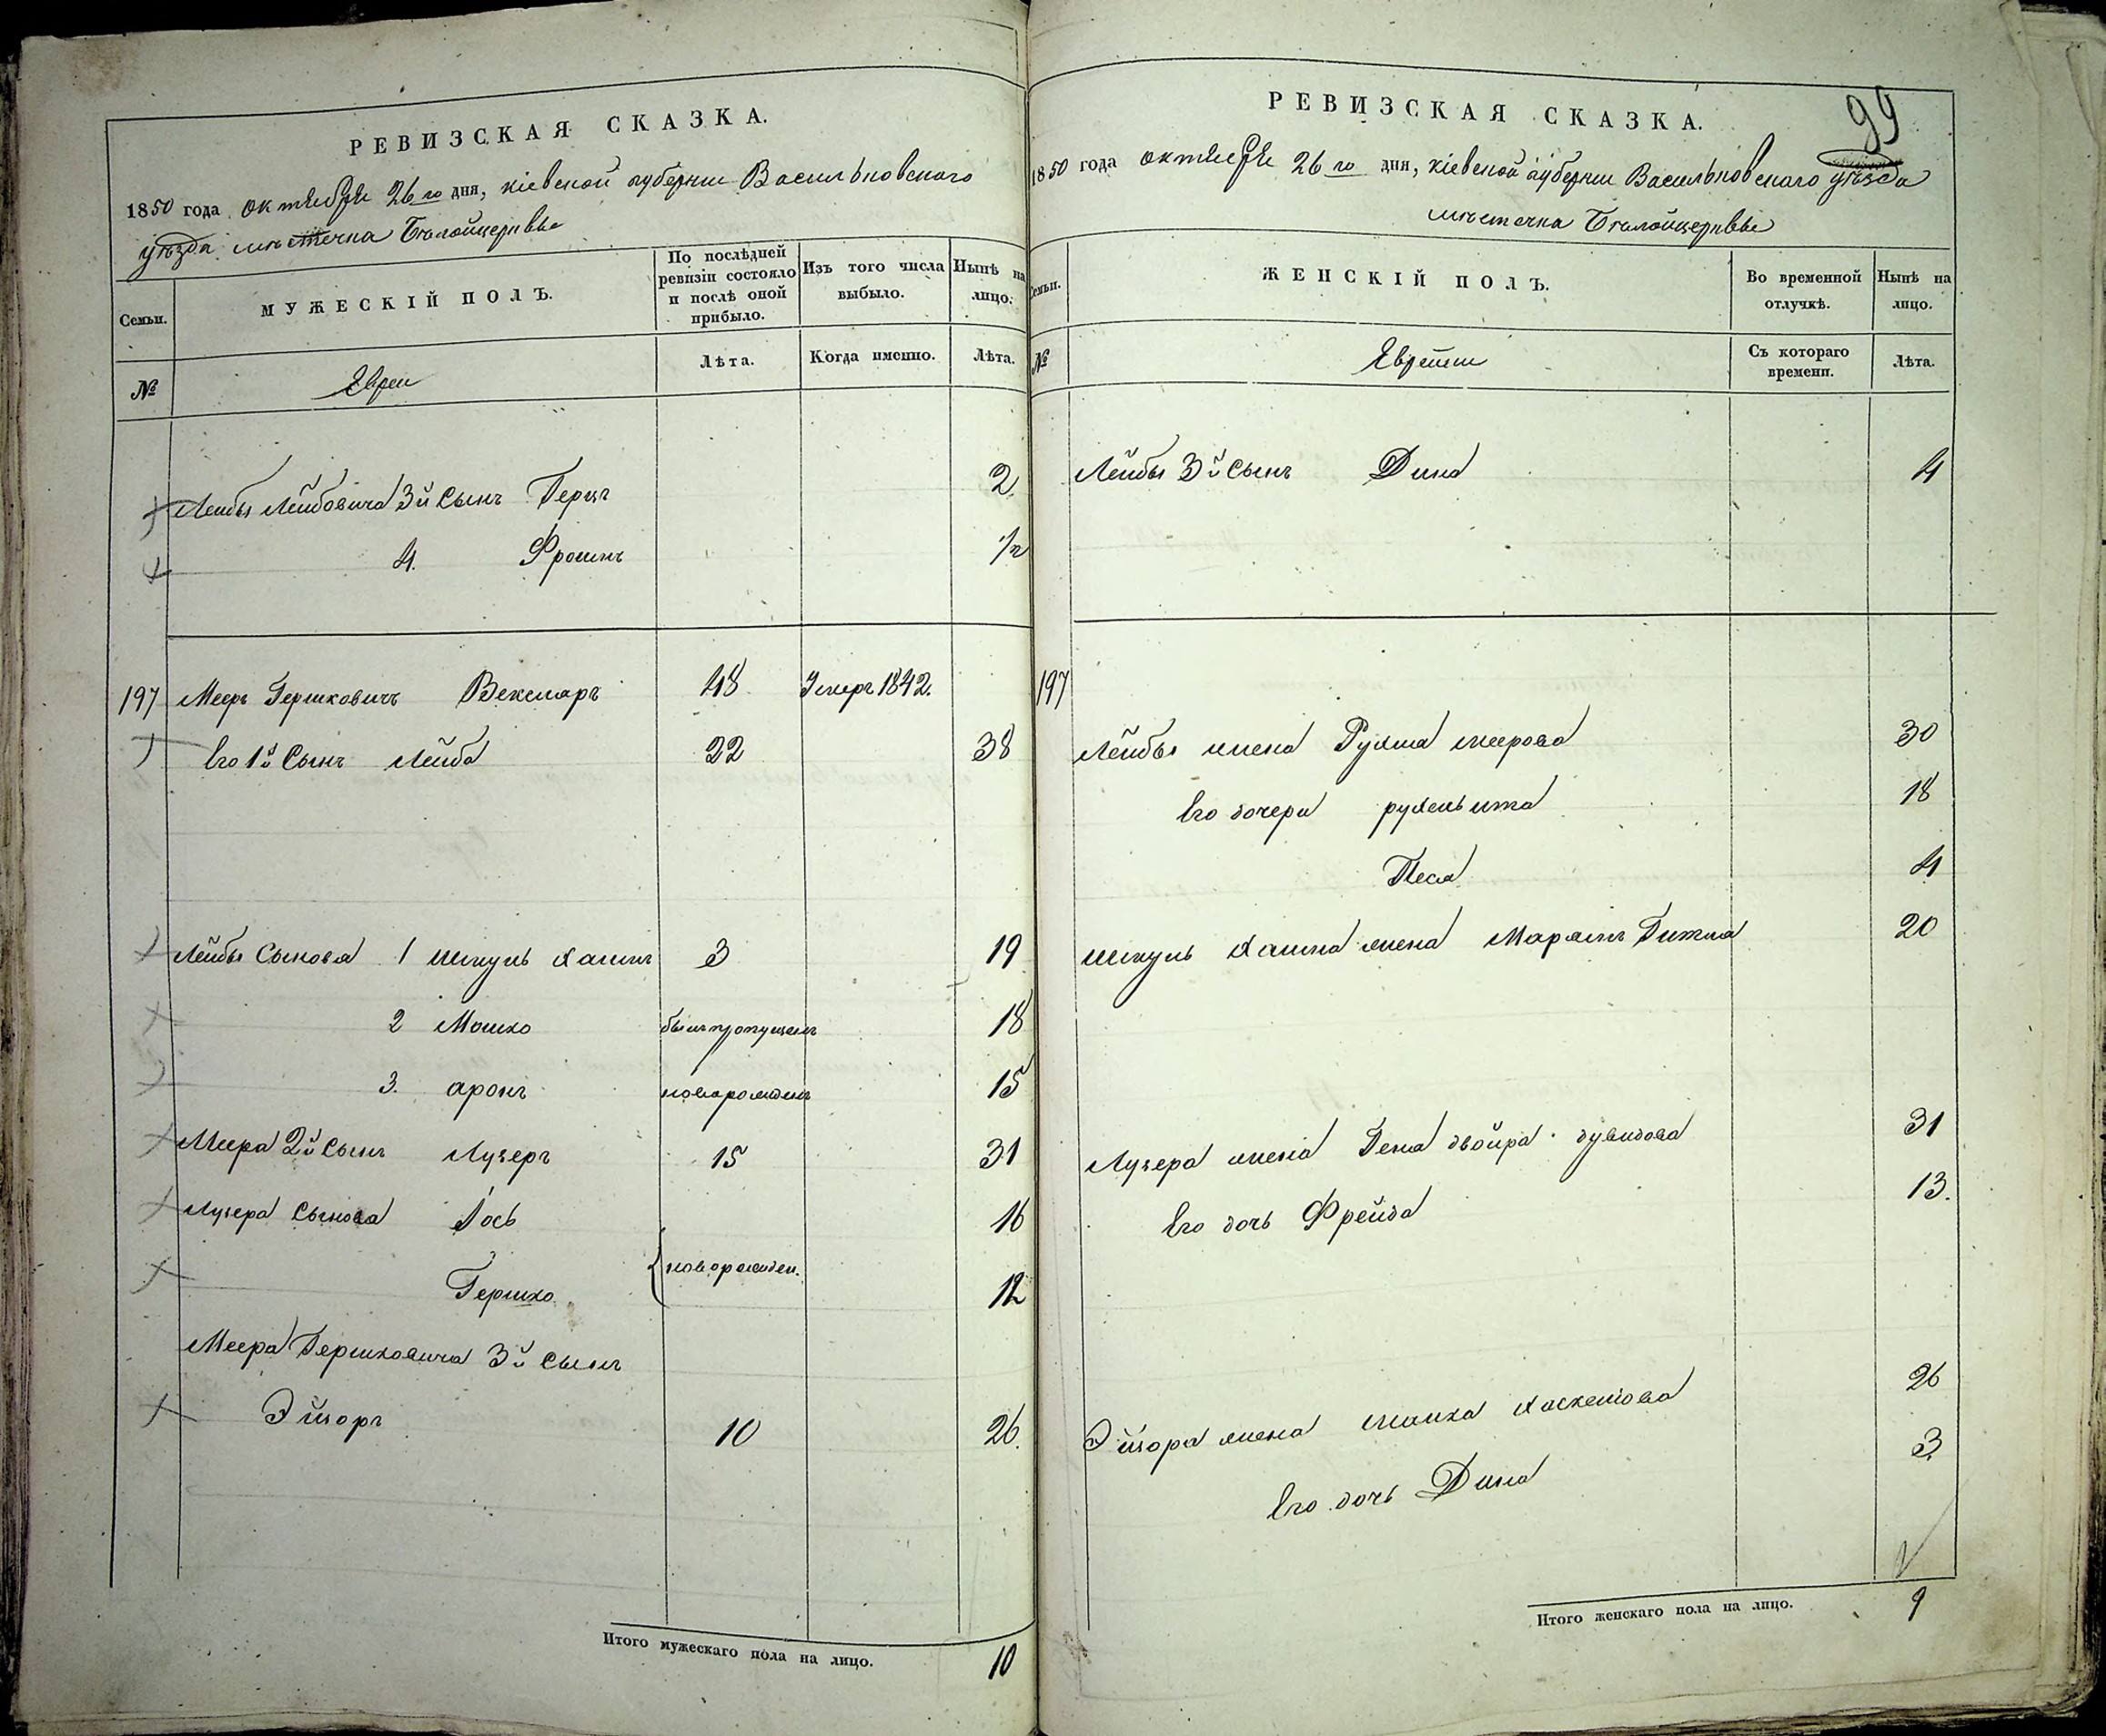 РЕВИЗСКАЯ СКАЗКА.
1850 года октября 26го дня, кіевской губерніи Васильковскаго
уѣзда мѣстечка Бѣлойцерквѣ
Семьи.
МУЖЕСКІЙ ПОЛЪ.
По послѣдней ревизіи состояло и послѣ оной прибыло.
Изъ того числа выбыло.
Нынѣ на лицо.
№
Евреи
Лѣта.
Когда именно.
Лѣта.
Лейбы Лейбовича 3й Сынъ Герцъ 2
4. Фроимъ 1/2
197 Мееръ Гершковичъ Вексларъ 48 Умеръ 1842.
Его 1й Сынъ Лейба 22 38
Лейбы Сыновья 1 Шмуль Хаимъ 3 19
2 Мошко былъ пропущенъ 18
3. аронъ новорожденъ 15
Меера 2й Сынъ Лузеръ 15 31
Лузера Сыновья Іось 16
новорожден.
Гершко 12
Меера Гершковича 3й Сынъ
10 26
Итого мужескаго пола на лицо. 10
99
РЕВИЗСКАЯ СКАЗКА.
1850 года октября 26го дня, кіевской губерніи Васильковскаго уѣзда
мѣстечка Бѣлойцерквѣ
Семьи.
ЖЕНСКІЙ ПОЛЪ.
Во временной отлучкѣ.
Нынѣ на лицо.
№
Еврейки
Съ котораго времени.
Лѣта.
Лейбы 3й Сынъ Дина 4
197
Лейбы жена Рухля меерова 30
Его дочери 18
Песя 4
Шмуль Хаима жена Марьямъ Гитля 20
Лузера жена Гена двойра дувидова 31
Его дочь Фрейда 13.
жена 26
Его дочь Дина 3
Итого женскаго пола на лицо. 9